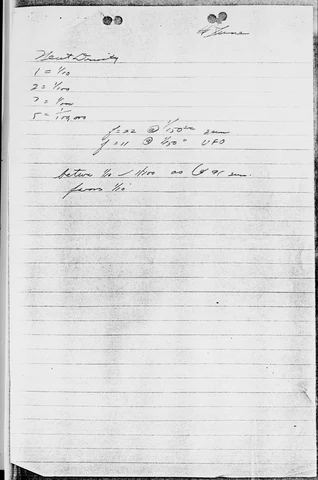 June
Neut Density
1 = 1/10
2 = 1/100
3 = 1/1000
5 = 1/100,000
f=22 @ 1/150 sec sun
f=11 @ 1/50" UFO
between 1/10 - 1/100 as as sun.
favors 1/10